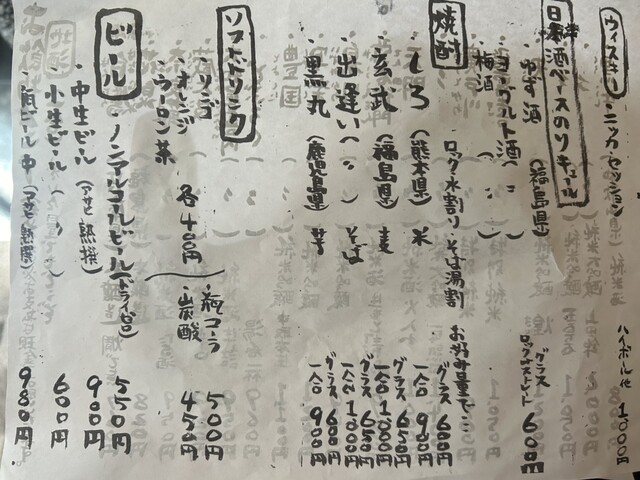 ウィスキー ・ニッカ・セッション ハイボール化 1000円
日本酒ベースのリキュール
・ゆず酒 (福島県) グラス ロックorストレート 600円
・ヨーグルト酒 (〃)
・梅酒 (〃)
焼酎 ロック・水割り・そば湯割 お好み量で
・しろ (熊本県) 米 グラス 600円 一合 980円
・玄武 (福島県) 麦 グラス 650円 一合 1000円
・出逢い (〃) そば グラス 650円 一合 1000円
・黒丸 (鹿児島県) 芋 グラス 600円 一合 900円
ソフトドリンク
・リンゴ
・オレンジ
・ウーロン茶 各400円
・瓶コーラ 500円
・炭酸 450円
ビール
・ノンアルコールビール(ドライゼロ) 550円
・中生ビール (アサヒ熟撰) 900円
・小生ビール (〃) 600円
・瓶ビール 中 (アサヒ熟撰) 980円